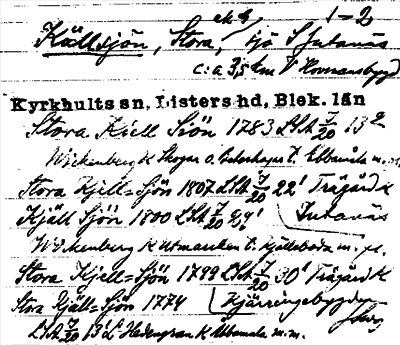 ek. 4 1-2
Källsjön, Stora, sjö S Jutanäs
c:a 3,5 km V Hovmansbygd
Kyrkhults sn, Listers hd, Blek. län
Stora Kiell Siön 1783 LSA 7/20 13²
Wickenberg K Skogar o. t. Ebbamåla m.m.
Stora Kjell=Sjön 1807 LSA 7/20 22¹ Trägård K
Kjäll Sjön 1800 LSA 7/20 29¹ Jutanäs
Wickenberg K Utmarken t. Kjälleboda m. fl.
Stora Kjell=Sjön 1799 LSA 7/20 30¹ Trägård K
Stora Kjäll=Sjön 1774 Kjärringebygden
LSA 7/20 13¹ L Hedengran K Ebbamåla m.m.